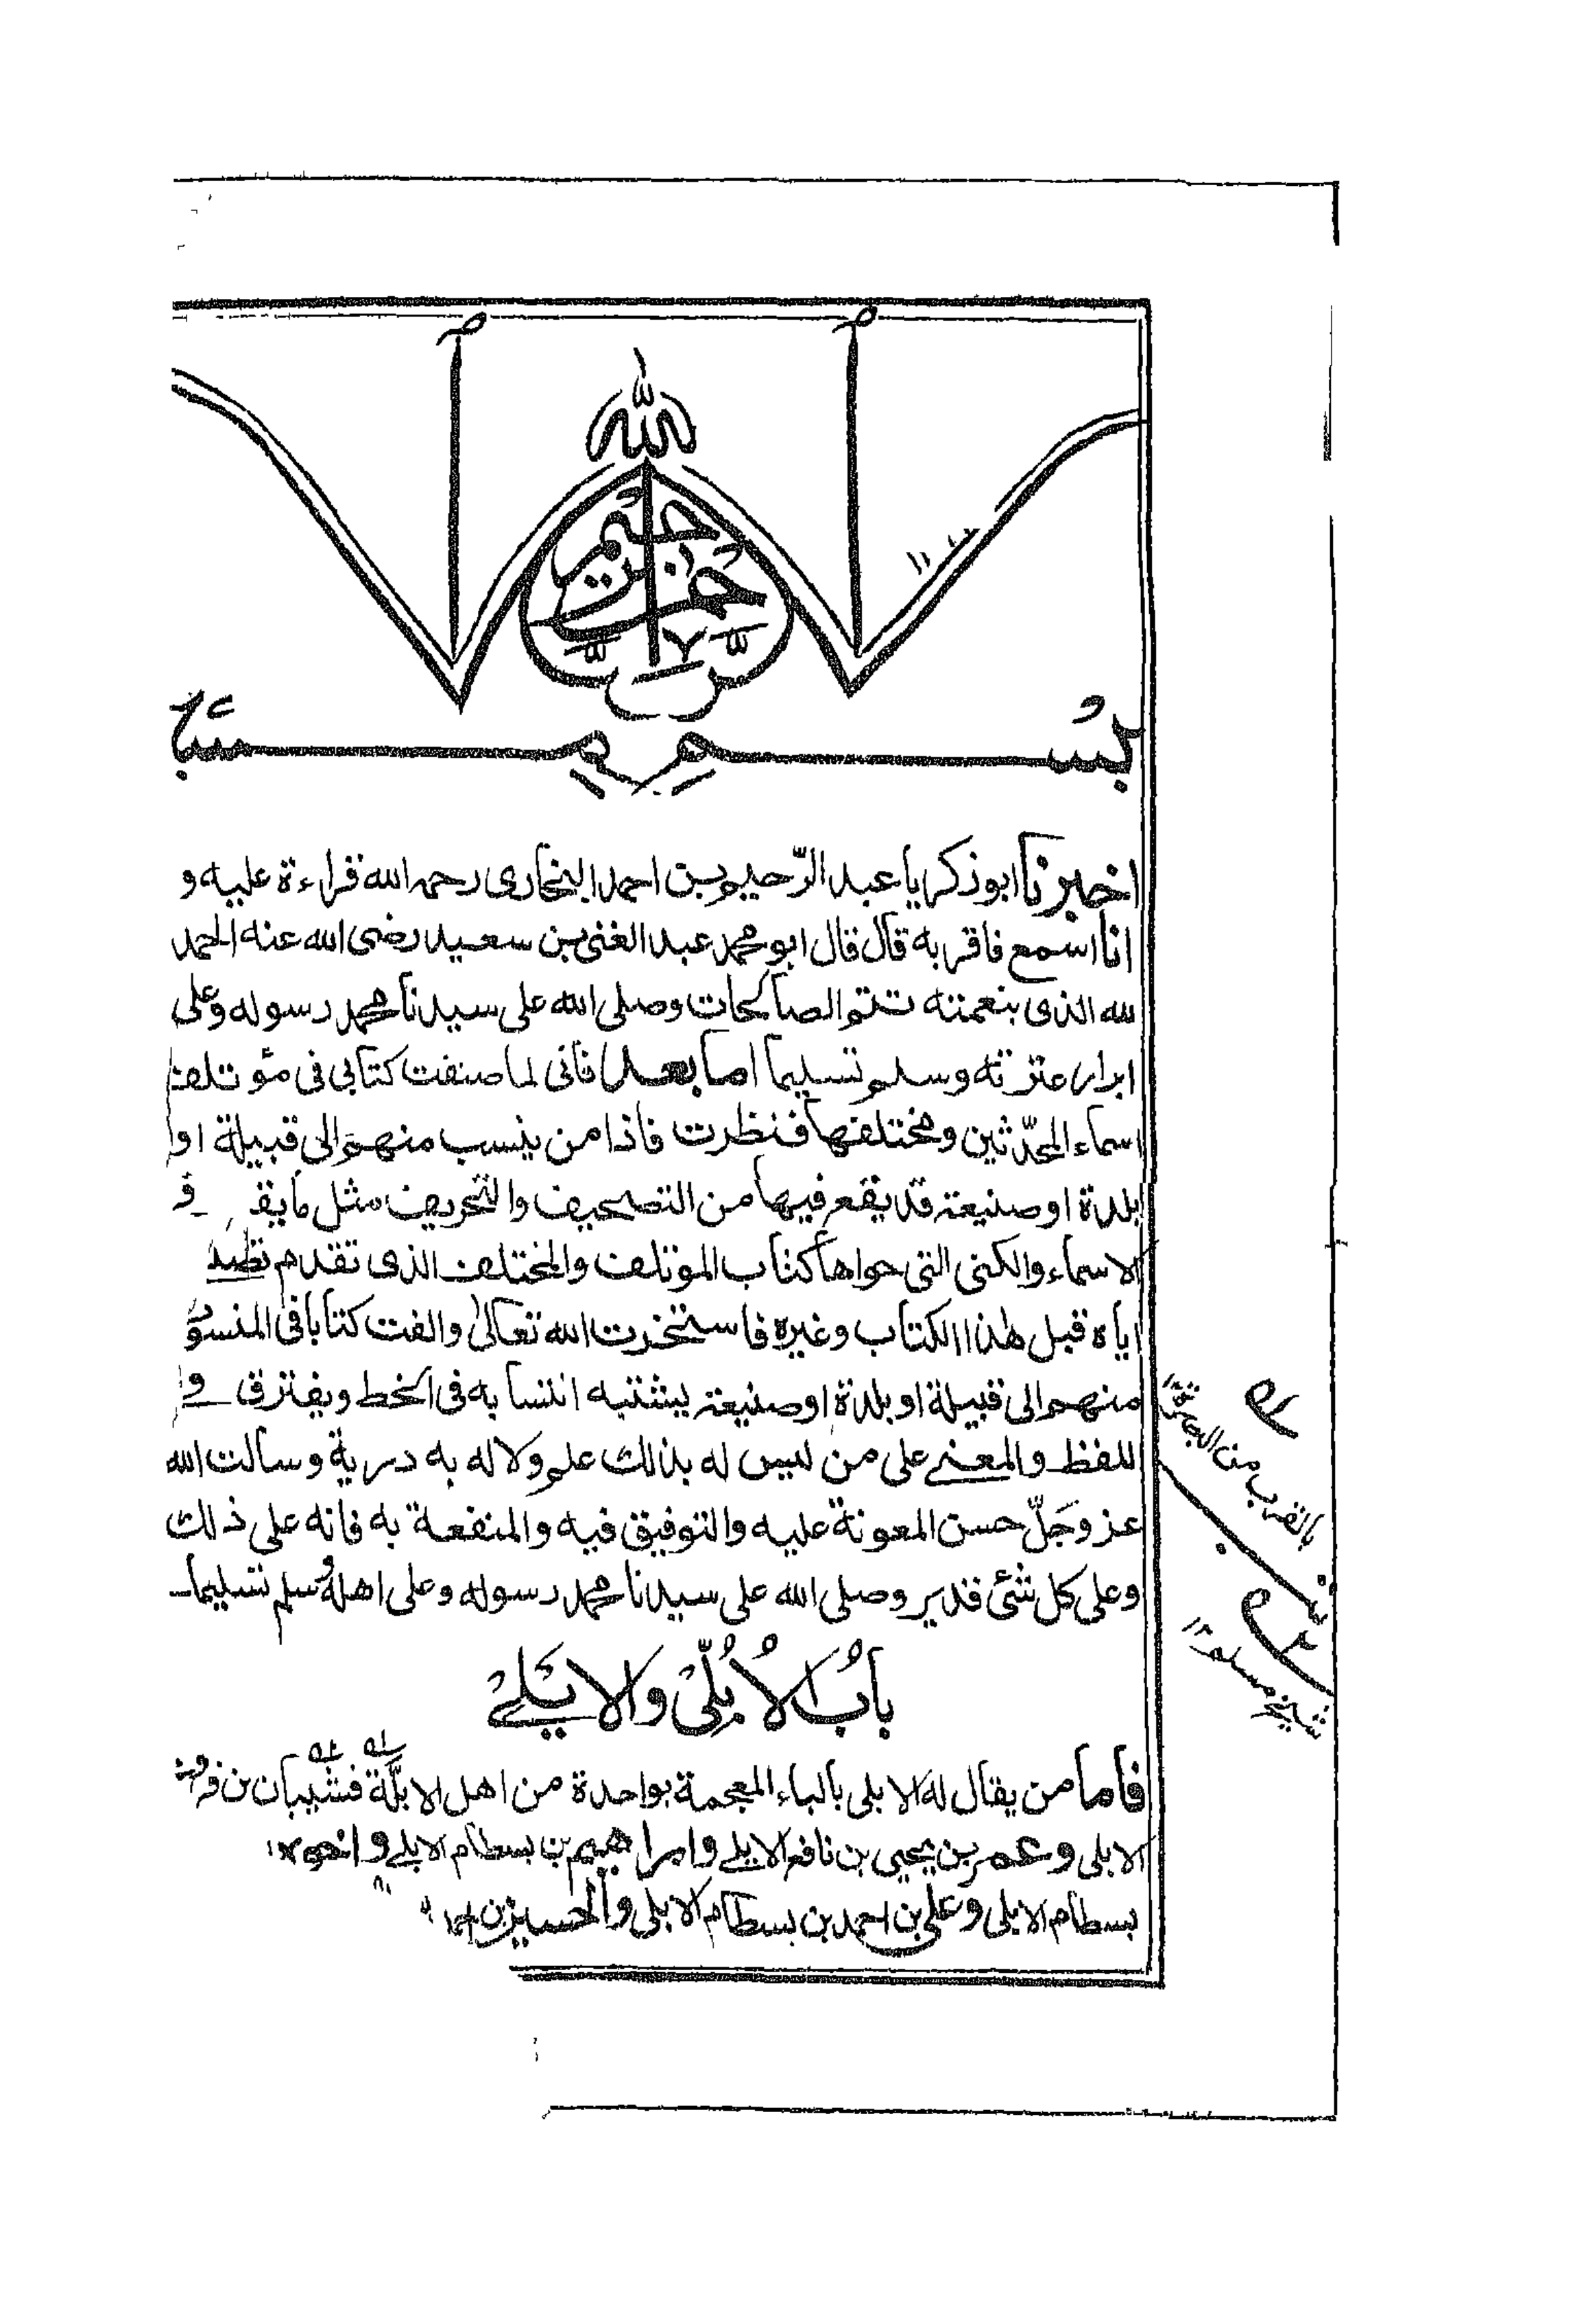 الله
الرحمن الرحيم
بسم
اخبرنا ابو زكريا عبد الرّحيم بن احمد البخارى رحمه الله قراءة عليه و
انا اسمع فاقر به قال قال ابو محمد عبد الغنى بن سعيد رضى الله عنه الحمد
لله الذى بنعمته تتم الصالحات وصلى الله على سيدنا محمد رسوله وعلى
ابرار عترته وسلم تسليما اما بعد فانى لما صنفت كتابى فى مؤتلف
اسماء المحدّثين ومختلفها فنظرت فاذا من ينسب منهم الى قبيلة او
بلدة او صنيعة قد يقع فيها من التصحيف والتحريف مثل ما يقع فى
الاسماء والكنى التى حواها كتاب المؤتلف والمختلف الذى تقدم
اياه قبل هذا الكتاب وغيره فاستخرت الله تعالى والفت كتابا فى المنسوب
منهم الى قبيلة او بلدة او صنيعة يشتبه انتسابه فى الخط ويفترق
اللفظ والمعنى على من ليس له بذلك علم ولا له به درية وسالت الله
عز وجَلّ حسن المعونة عليه والتوفيق فيه والمنفعة به فانه على ذلك
وعلى كل شئ قدير وصلى الله على سيدنا محمد رسوله وعلى اهله وسلم تسليما
بابُ الاُبُلّىْ والايَلىْ
فاما من يقال له الابلى بالباء المعجمة بواحدة من اهل الابلّة فشيبان بن فروخ
الابلى وعمر بن يحيى بن نافع الابلى وابراهيم بن بسطام الابلى و
بسطام الابلى وعلى بن احمد بن بسطام الابلى والحسين بن
بالقرب من البصرة
شيخ مسلم ١٢